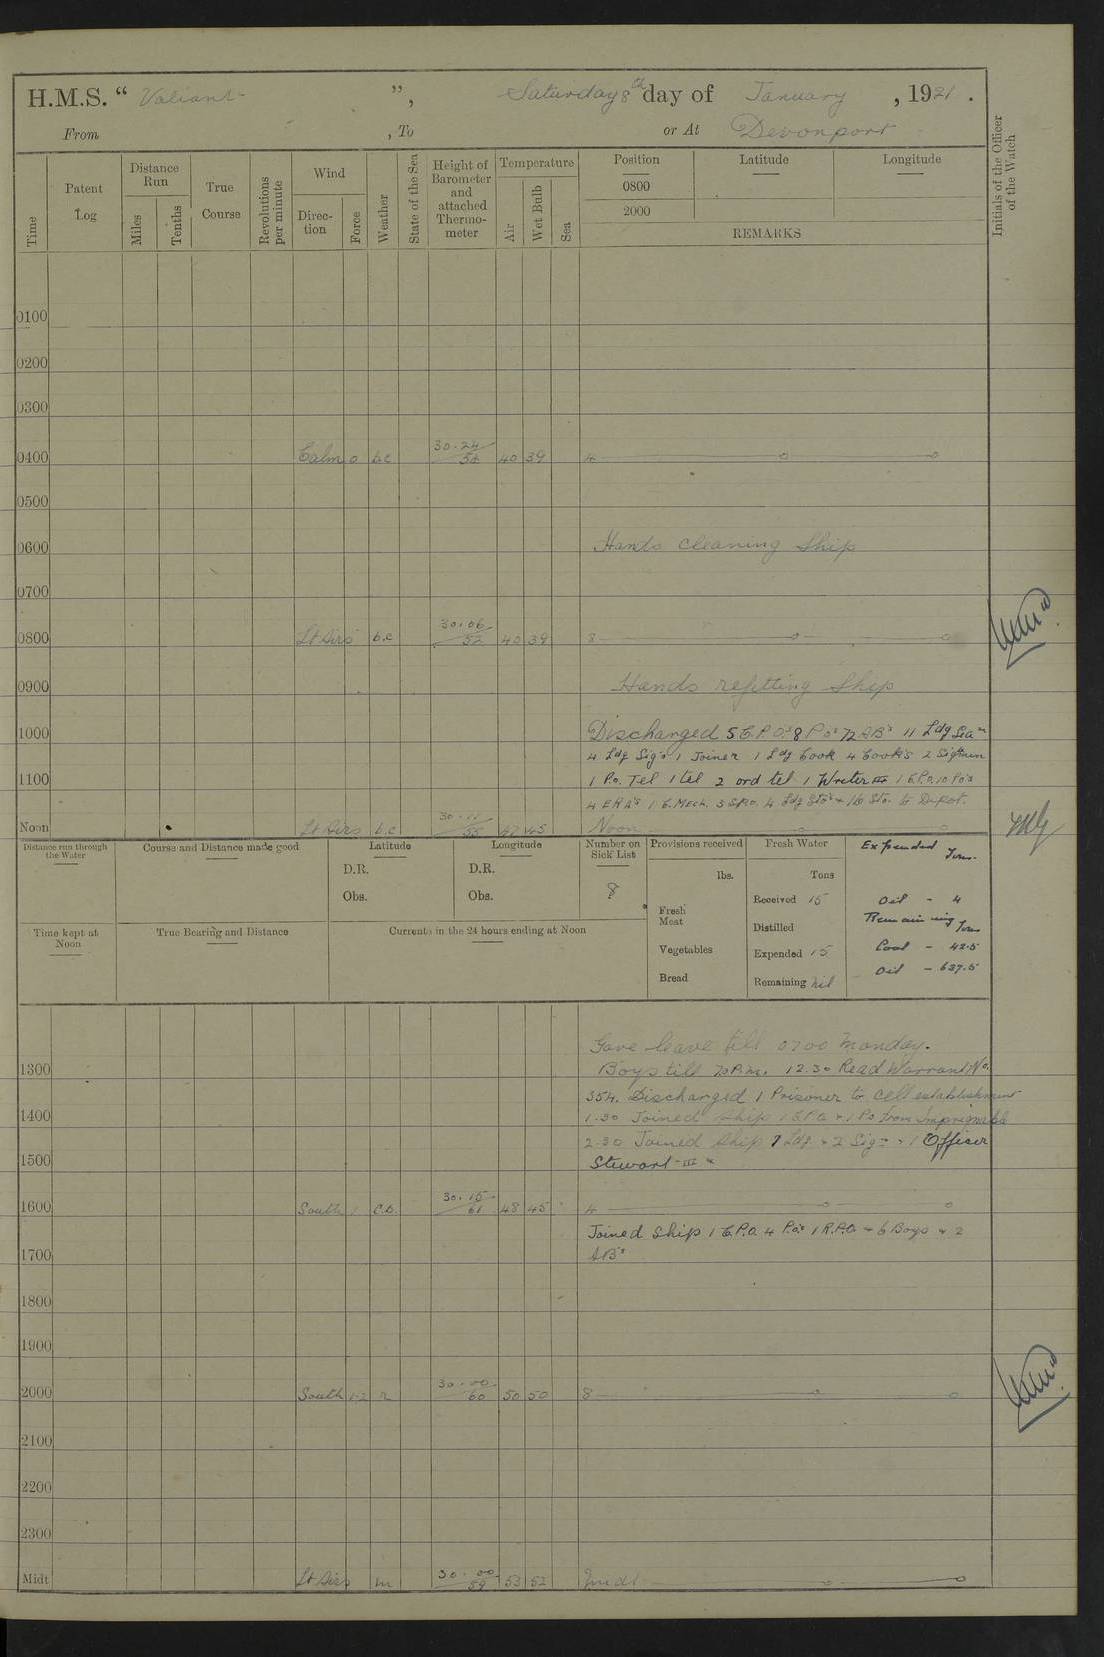 H.M.S. “ Valiant ”, Saturday 8th day of January , 1921 .
From , To or At Devonport
Time
Patent Log
Distance Run
Miles
Tenths
True Course
Revolutions per minute
Wind
Direc- tion
Force
Weather
State of the Sea
Height of Barometer and attached Thermo- meter
Temperature
Air
Wet Bulb
Sea
Position
0800
2000
Latitude
Longitude
REMARKS
Initials of the Officer of the Watch
0100
0200
0300
0400 Calm 0 b.c 30.24 / 54 40 39 4
0500
0600 Hands cleaning Ship
0700
0800 Lt Airs b.c 30.06 / 52 40 39 8
0900 Hands refitting Ship
1000 Discharged 5 C.P.O's 8 P.O's 72 AB's 11 Ldg Sea
4 Ldg Sig's 1 Joiner 1 Ldg Cook 4 Cooks 2 Sigmen
1100 1 P.O. Tel 1 tel 2 ord tel 1 Writer III 1 C.P.O. 10 P.O's
4 ERA's 1 C.Mech. 3 S.P.O. 4 Ldg Sto's + 16 Sto. to Depot.
Noon Lt Airs b.c 30.11 / 55 47 45 Noon
Distance run through the Water
Course and Distance made good
Latitude
D.R.
Obs.
Longitude
D.R.
Obs.
Number on Sick List
8
Provisions received
lbs.
Fresh Meat
Vegetables
Bread
Fresh Water
Tons
Received 15
Distilled
Expended 15
Remaining nil
Expended Tons.
Oil - 4
Remaining Tons
Coal - 42.5
Oil - 637.5
Time kept at Noon
True Bearing and Distance
Currents in the 24 hours ending at Noon
Gave leave till 0700 Monday.
1300 Boys till 7.0 P.m. 12.30 Read Warrant No.
354. Discharged 1 Prisoner to cell establishment
1400 1.30 Joined Ship 1 C.P.O. + 1 PO from Impregnable
2.30 Joined Ship 7 Ldg + 2 Sig + 1 Officer
1500 Steward III
1600 South 1 c.d. 30.15 / 61 48 45 4
Joined Ship 1 C.P.O. 4 P.O's 1 R.P.O. + 6 Boys + 2
1700 AB's
1800
1900
2000 South 1-2 r 30.00 / 60 50 50 8
2100
2200
2300
Midt Lt Airs m 30.00 / 59 53 52 Midt